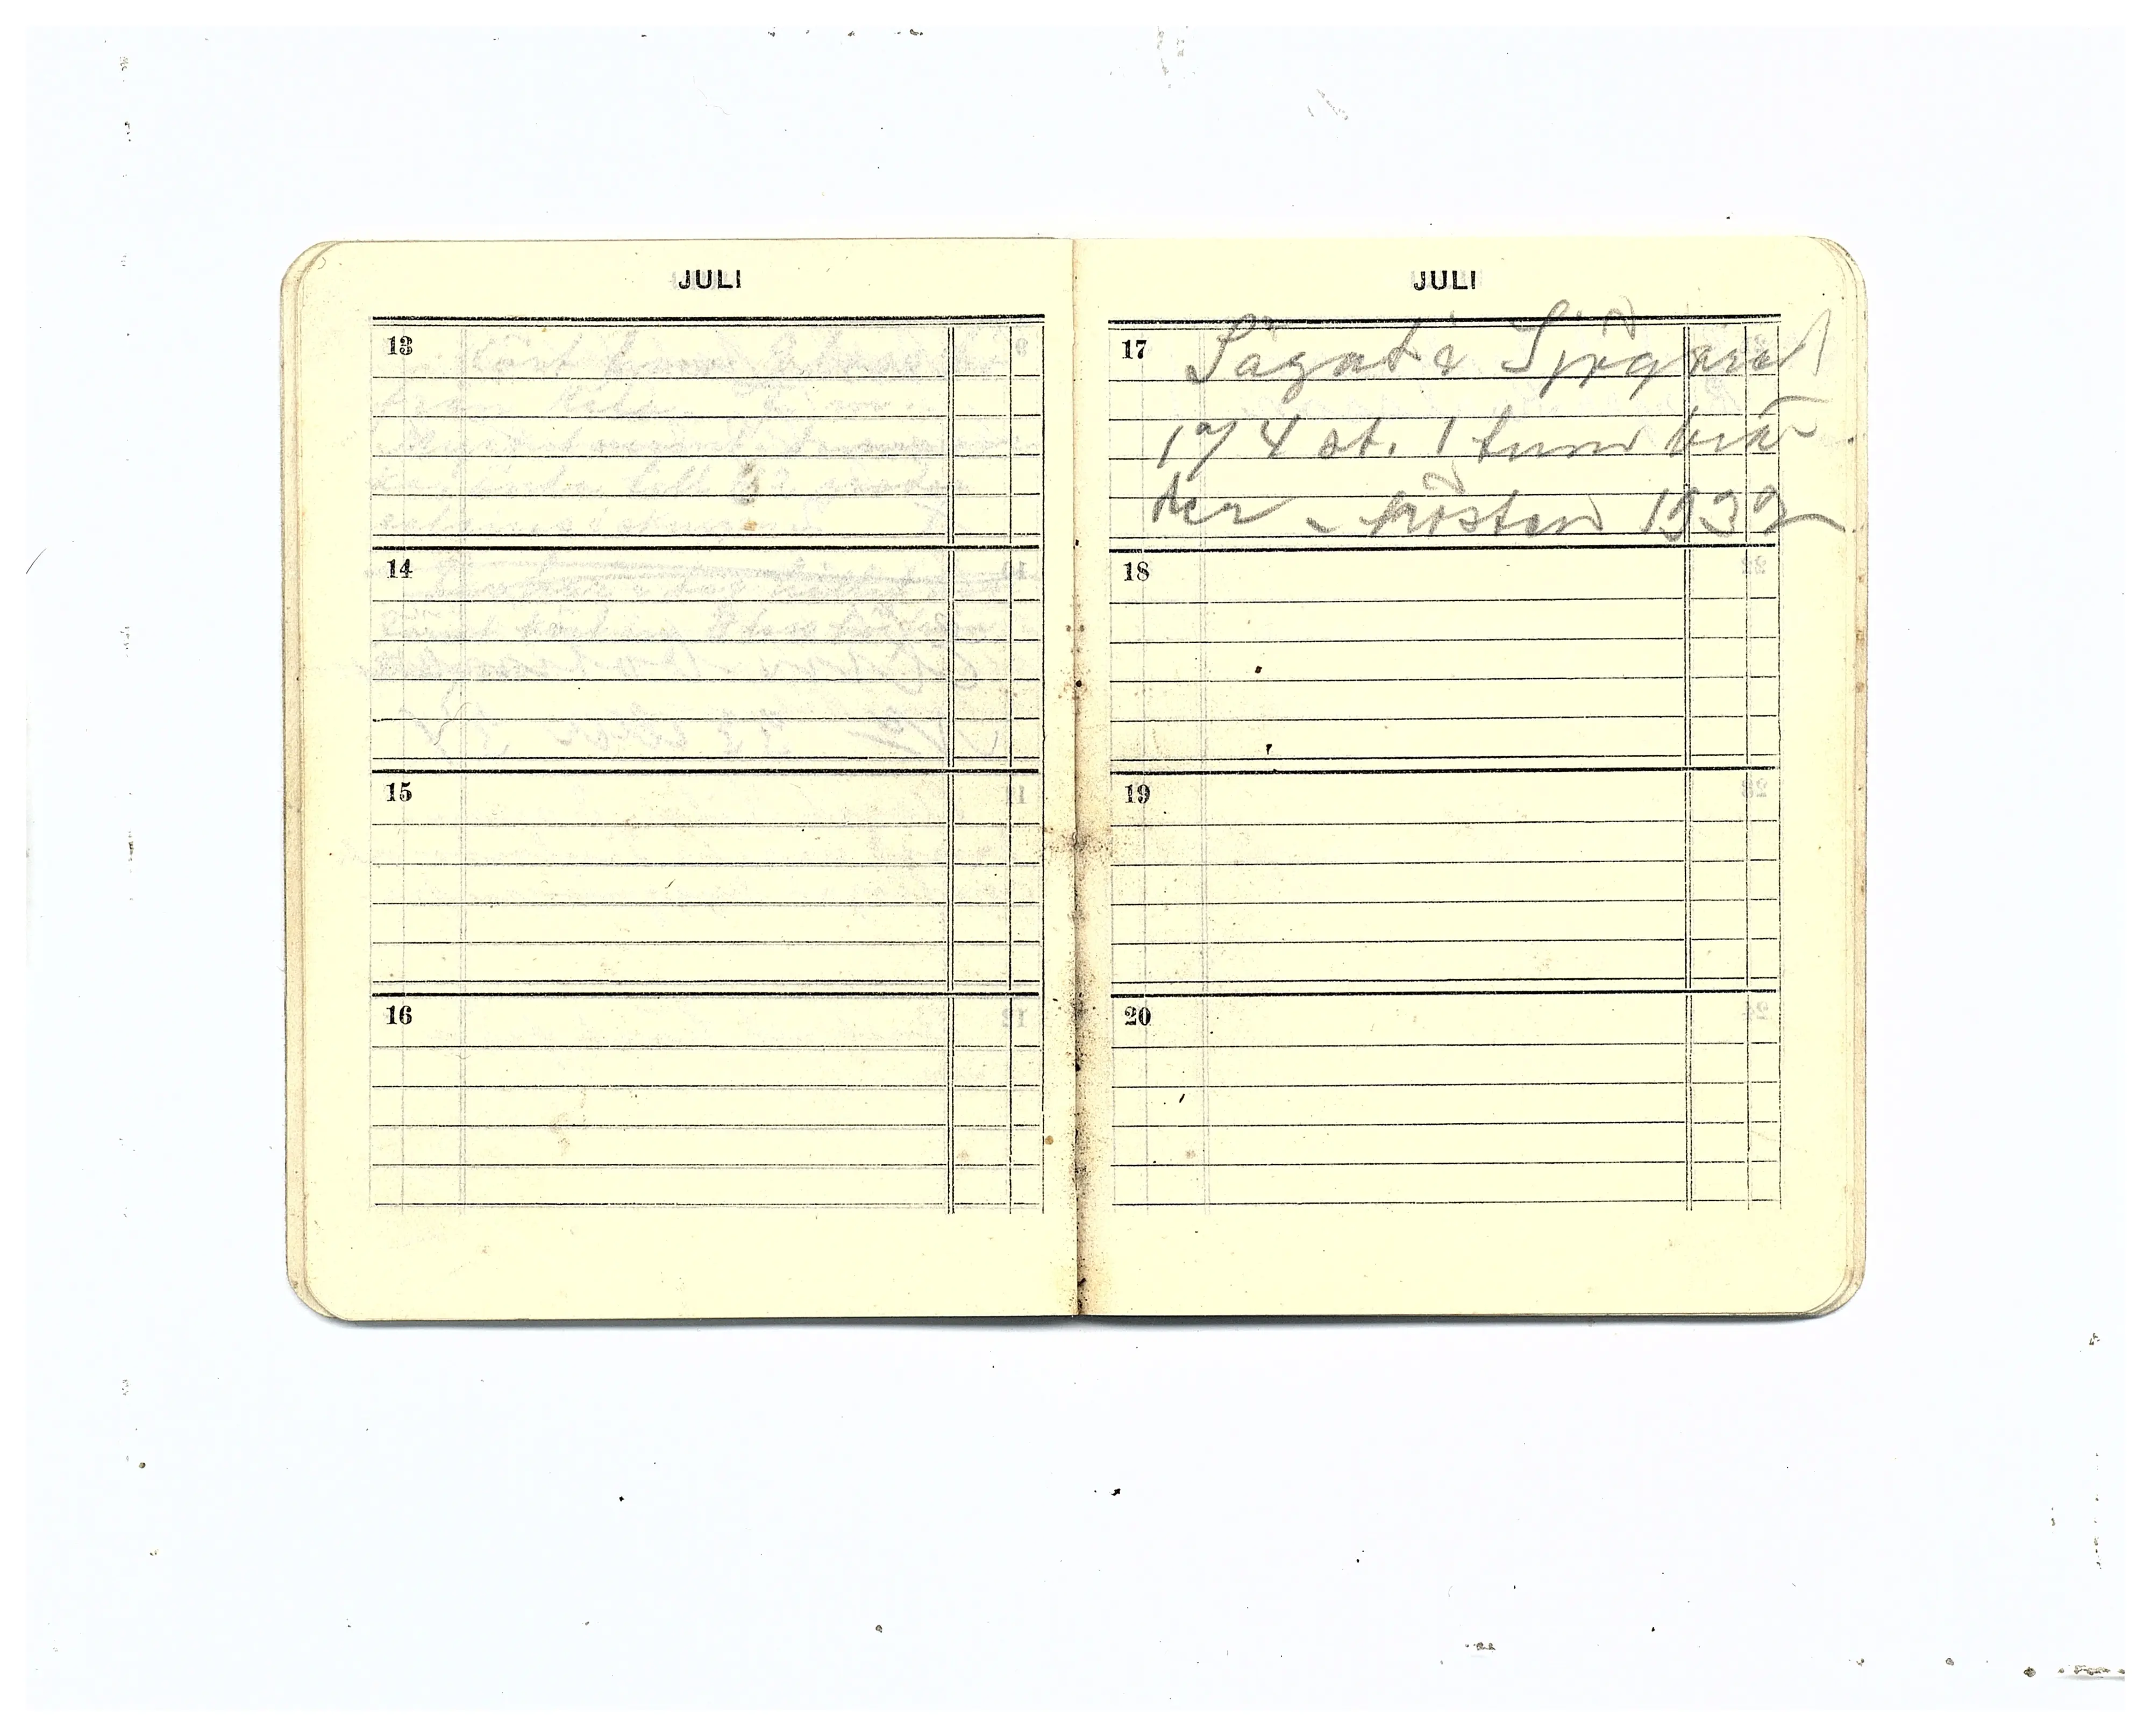 JULI
13
14
15
16
JULI
17 Sågat i Sjögärd
174 st. 1 tums brä-
der - hösten 1932
18
19
20